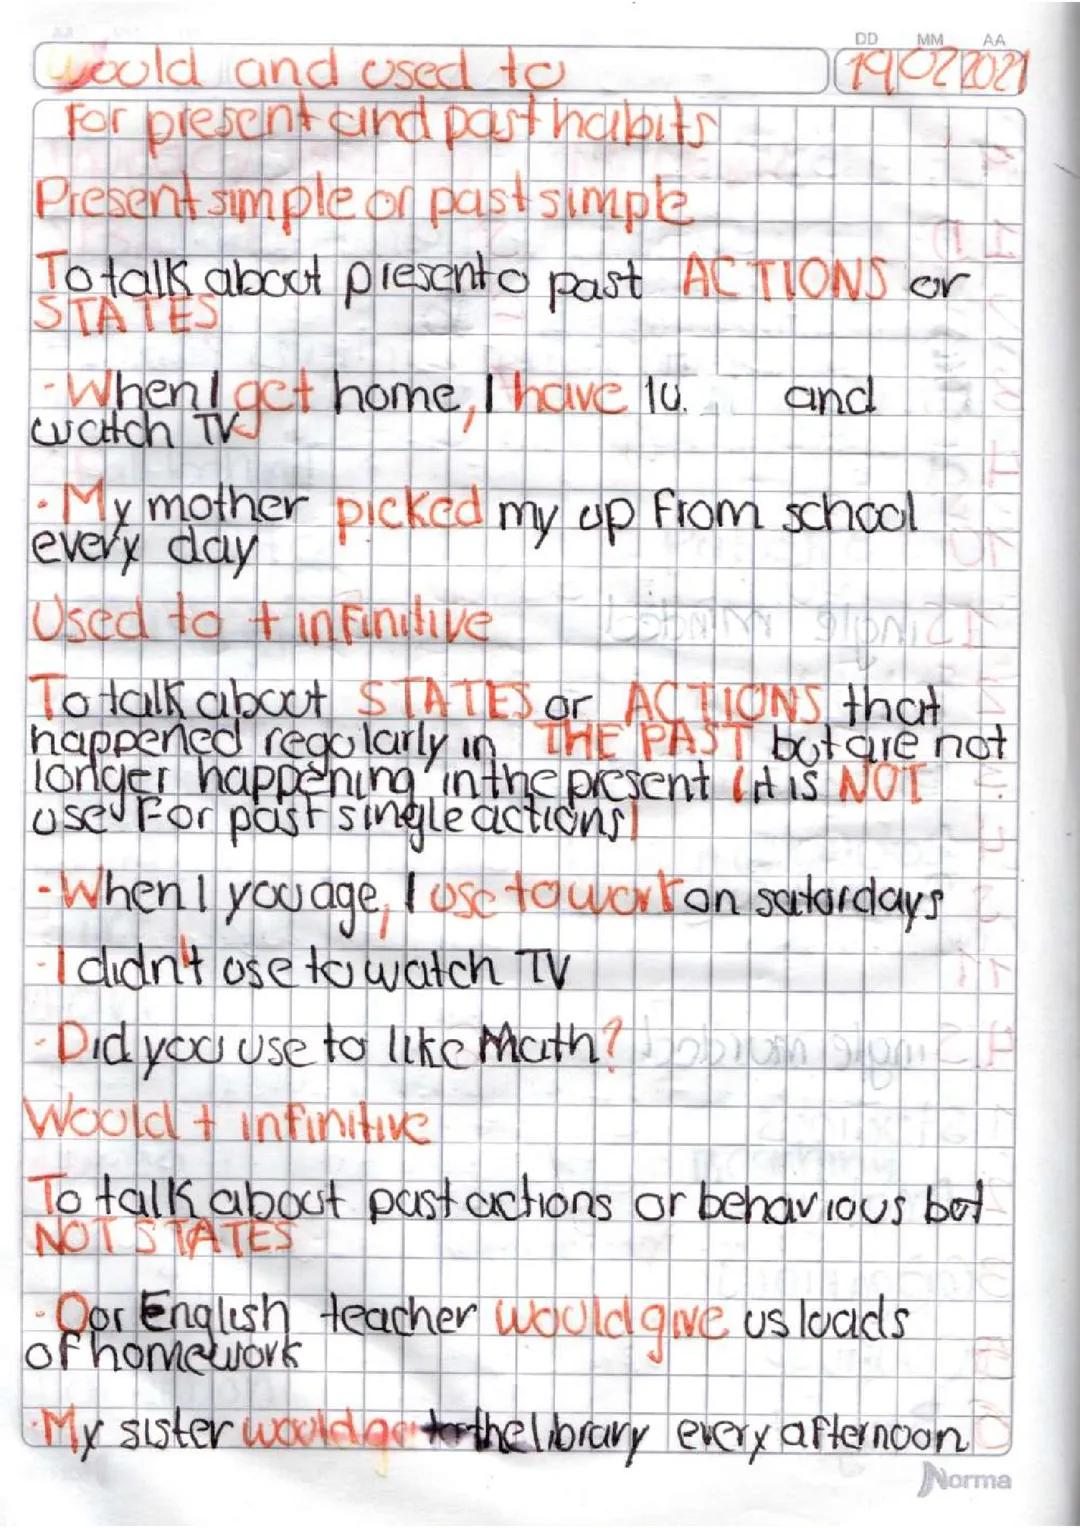 DD MM AA
would and used to 19 02 2021
For present and past habits
Present simple or past simple
To talk about present o past ACTIONS or
STATES
- When I get home, I have and
watch TV
· My mother picked my up from school
every day
Used to + infinitive
To talk about STATES or ACTIONS that
happened regularly in THE PAST but are not
longer happening in the present (it is NOT
use for past single actions)
- When I you age, I use to work on saturdays
- I didn't use to watch TV
- Did you use to like Math?
Would + infinitive
To talk about past actions or behavious but
NOT STATES
- Our English teacher would give us loads
of homework
· My sister would go to the library every afternoon
Norma